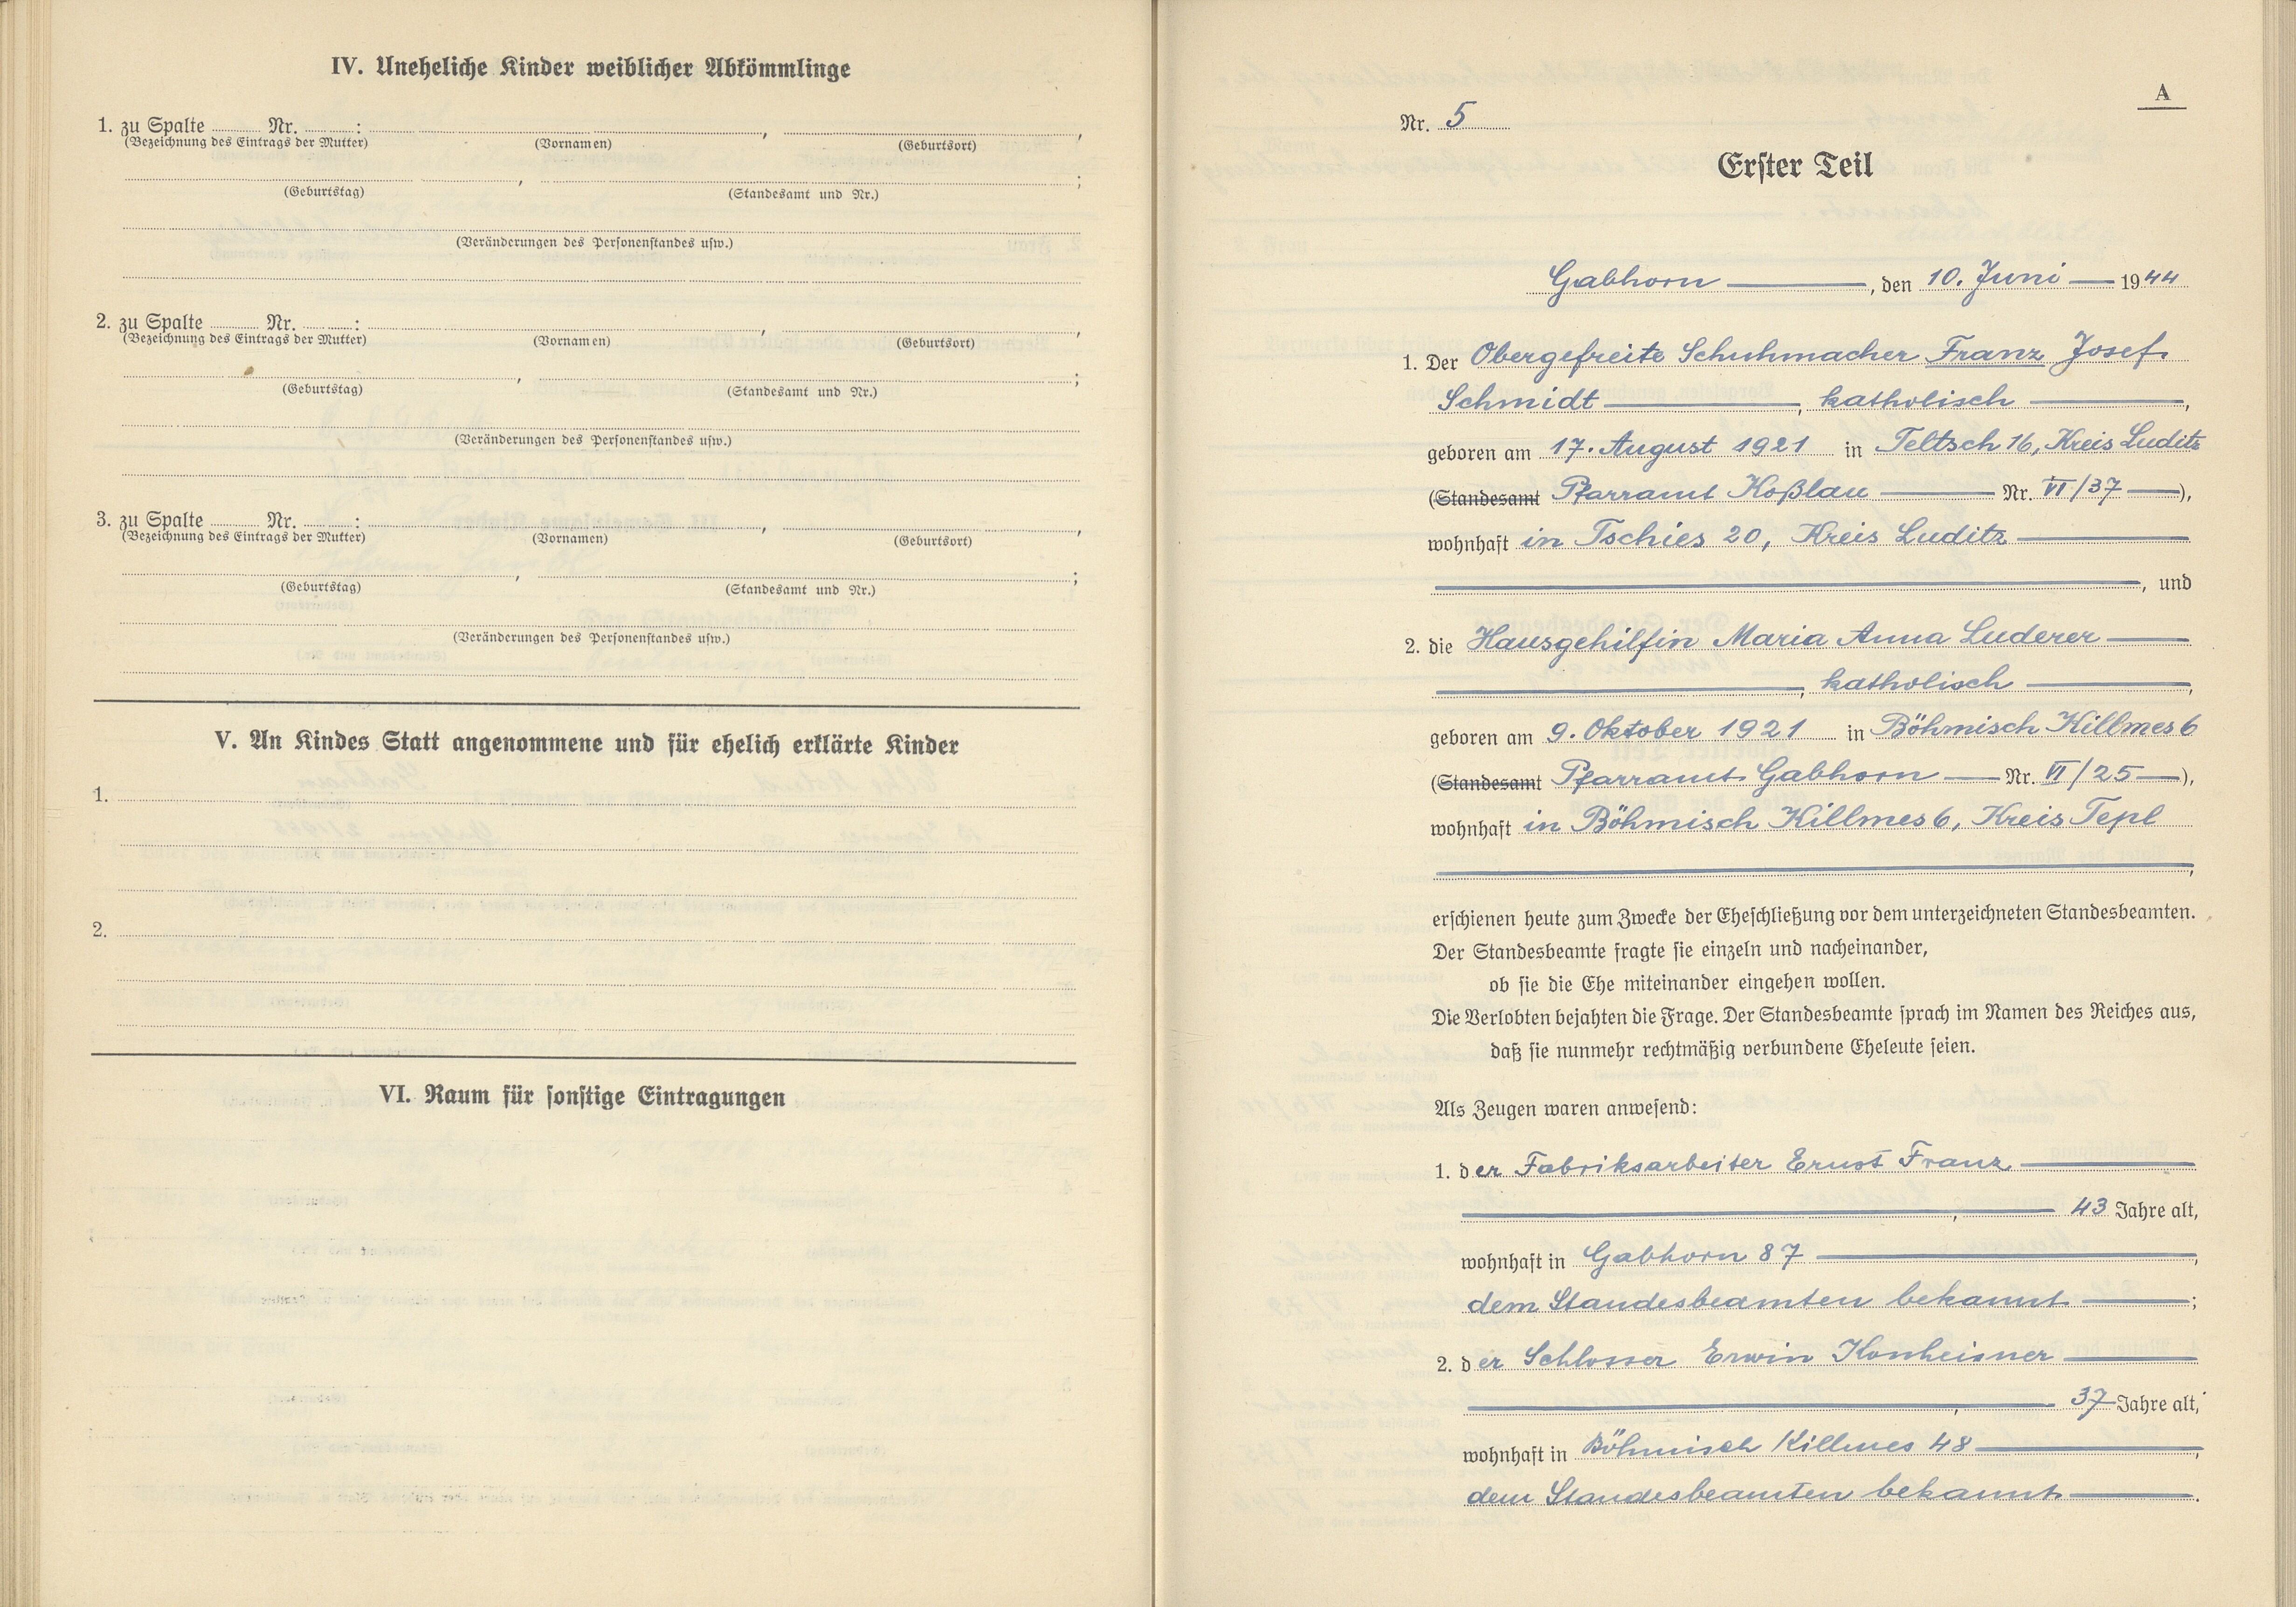 IV. Uneheliche Kinder weiblicher Abkömmlinge
1. zu Spalte Nr. : , ,
(Bezeichnung des Eintrags der Mutter) (Vornamen) (Geburtsort)
, ;
(Geburtstag) (Standesamt und Nr.)
(Veränderungen des Personenstandes usw.)
2. zu Spalte Nr. : , ,
(Bezeichnung des Eintrags der Mutter) (Vornamen) (Geburtsort)
, ;
(Geburtstag) (Standesamt und Nr.)
(Veränderungen des Personenstandes usw.)
3. zu Spalte Nr. : , ,
(Bezeichnung des Eintrags der Mutter) (Vornamen) (Geburtsort)
, ;
(Geburtstag) (Standesamt und Nr.)
(Veränderungen des Personenstandes usw.)
V. An Kindes Statt angenommene und für ehelich erklärte Kinder
1.
2.
VI. Raum für sonstige Eintragungen
A
Nr. 5
Erster Teil
Gabhorn , den 10. Juni 1944
1. Der Obergefreite Schuhmacher Franz Josef
Schmidt , katholisch ,
geboren am 17. August 1921 in Teltsch 16, Kreis Luditz
(Standesamt Pfarramt Koßlau Nr. VI/37 ),
wohnhaft in Tschies 20, Kreis Luditz
, und
2. die Hausgehilfin Maria Anna Luderer
, katholisch ,
geboren am 9. Oktober 1921 in Böhmisch Killmes 6
(Standesamt Pfarramt Gabhorn Nr. VI/25 ),
wohnhaft in Böhmisch Killmes 6, Kreis Tepl
,
erschienen heute zum Zwecke der Eheschließung vor dem unterzeichneten Standesbeamten.
Der Standesbeamte fragte sie einzeln und nacheinander,
ob sie die Ehe miteinander eingehen wollen.
Die Verlobten bejahten die Frage. Der Standesbeamte sprach im Namen des Reiches aus,
daß sie nunmehr rechtmäßig verbundene Eheleute seien.
Als Zeugen waren anwesend:
1. der Fabriksarbeiter Ernst Franz
, 43 Jahre alt,
wohnhaft in Gabhorn 87 ,
dem Standesbeamten bekannt ;
2. der Schlosser Erwin Konheisner
, 37 Jahre alt,
wohnhaft in Böhmisch Killmes 48 ,
dem Standesbeamten bekannt .